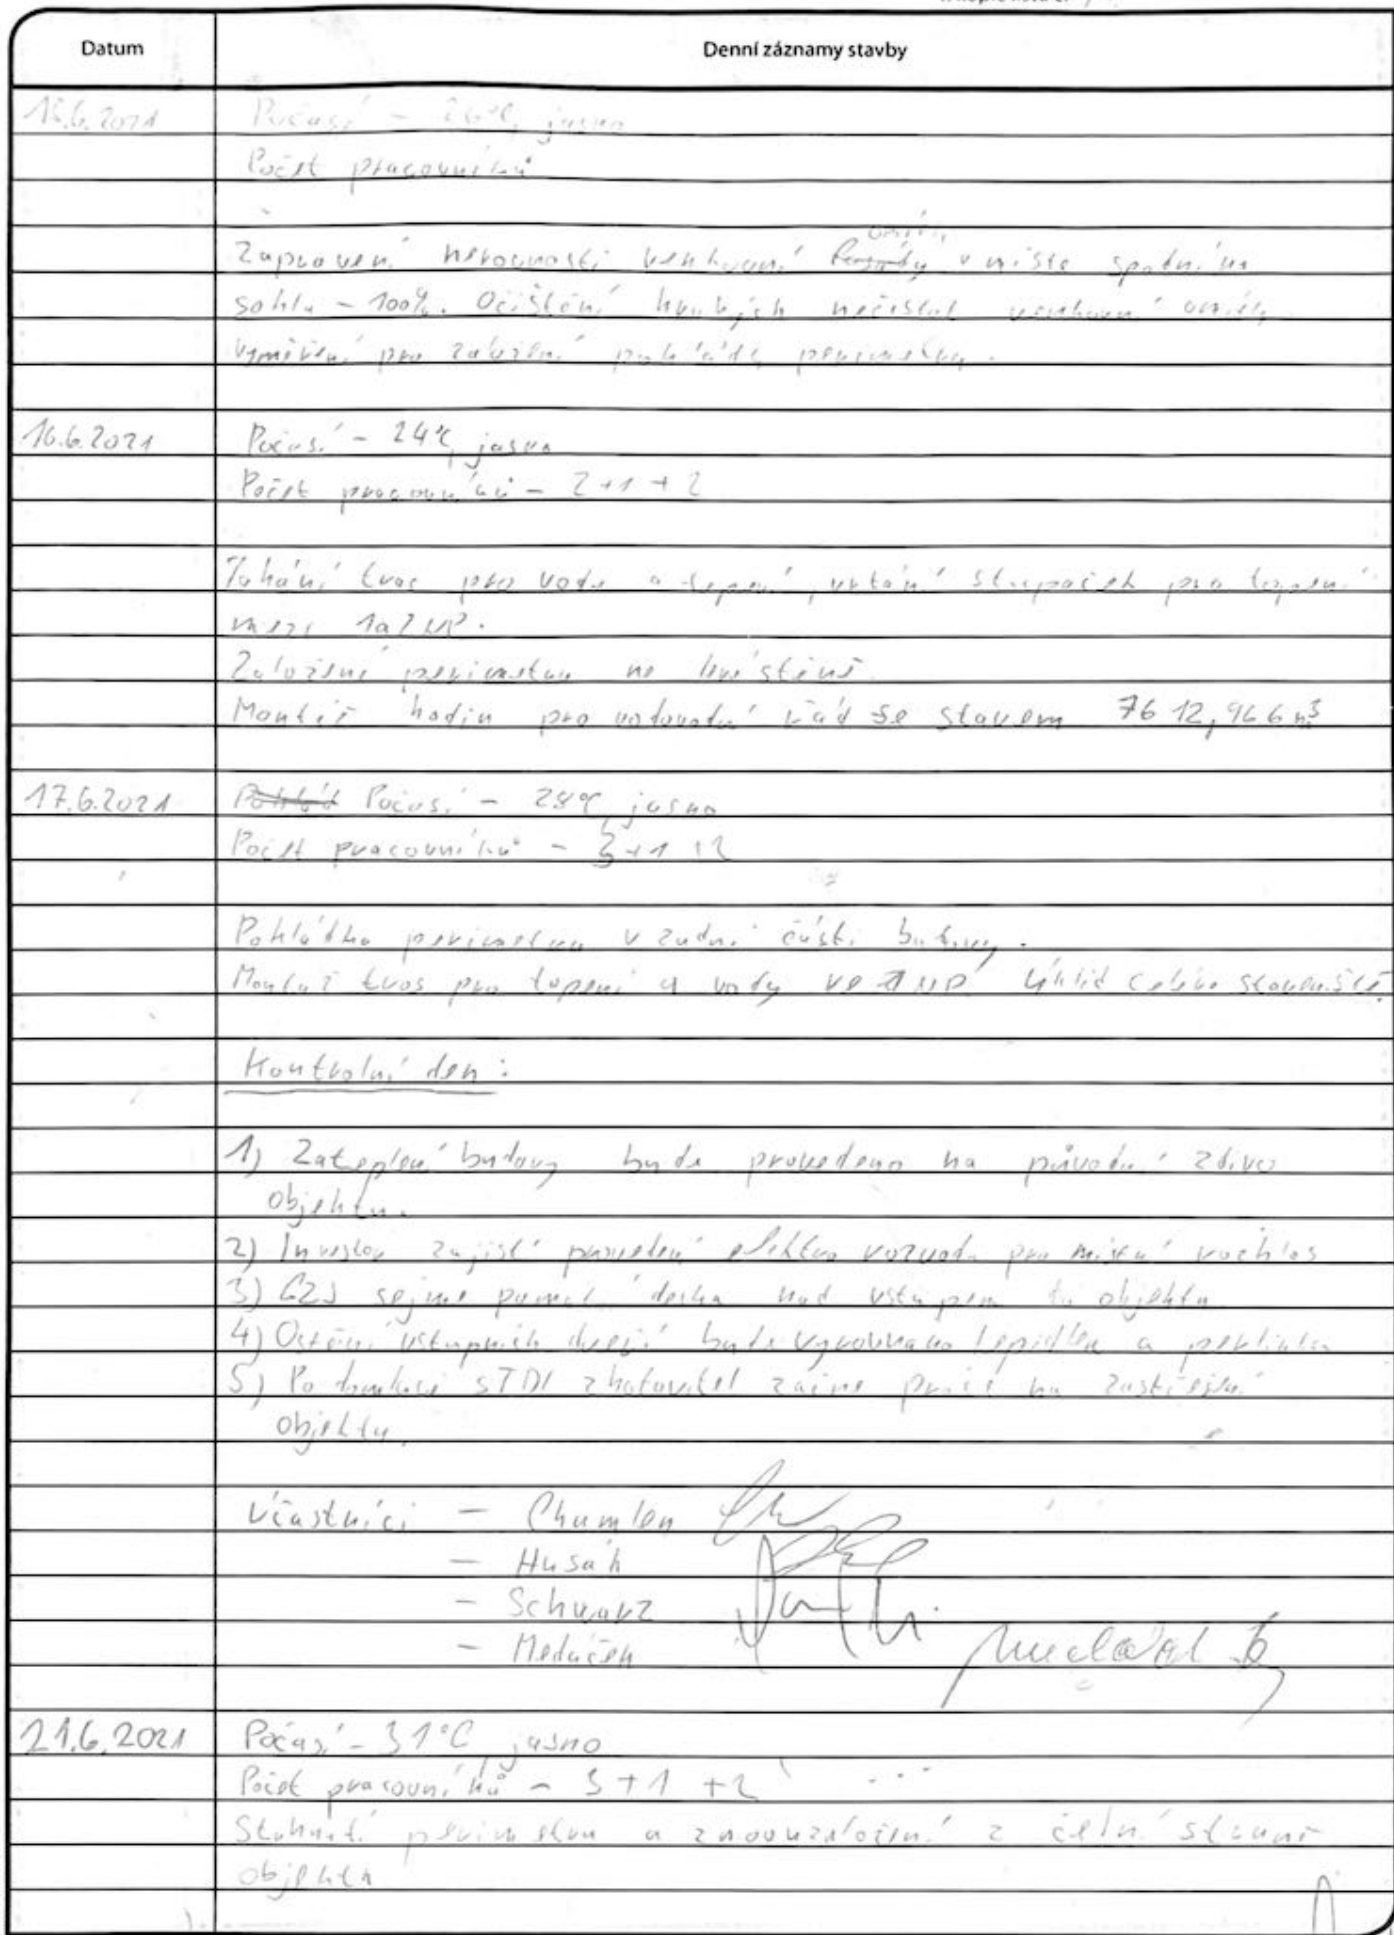 Datum
Denní záznamy stavby
Počasí - 26°C, jasno
Počet pracovníků
Zapravení nerovností venkovní v místě spodního
soklu - 100%. Očištění hrubých nečistot venkovní
Vyměření pro založení pokládky perimetru.
16.6.2021
Počasí - 24°C, jasno
Počet pracovníků - 2+1+2
Tahání tras pro vodu a topení, vrtání stupaček pro topení
mezi 1a2NP.
Založení perimetru na levé stěně.
Montáž hodin pro vodovodní řád se stavem 7612,966 m3
17.6.2021
Počasí - 28°C, jasno
Počet pracovníků - 3+1+2
Pokládka perimetru v zadní části budovy.
Montáž tras pro topení a vody ve NP. Úklid celého staveniště.
Kontrolní den:
1) Zateplení budovy bude provedeno na původní zdivo
objektu.
2) Investor zajistí provedení elektro rozvodu pro místní rozhlas
3) sejme pamětní deska nad vstupem do objektu
4) Ostění vstupních dveří bude vyrovnano lepidlem a perlinkou
5) Po domluvě s TDI zhotovitel začne práce na zastřešení
objektu.
Účastníci - Chumlen
- Husák
- Schwarz
- Medáček
21.6.2021
Počasí - 31°C, jasno
Počet pracovníků - 3+1+2
Stuhnutí perimetru a znovuzaložení z čelní straně
objektu